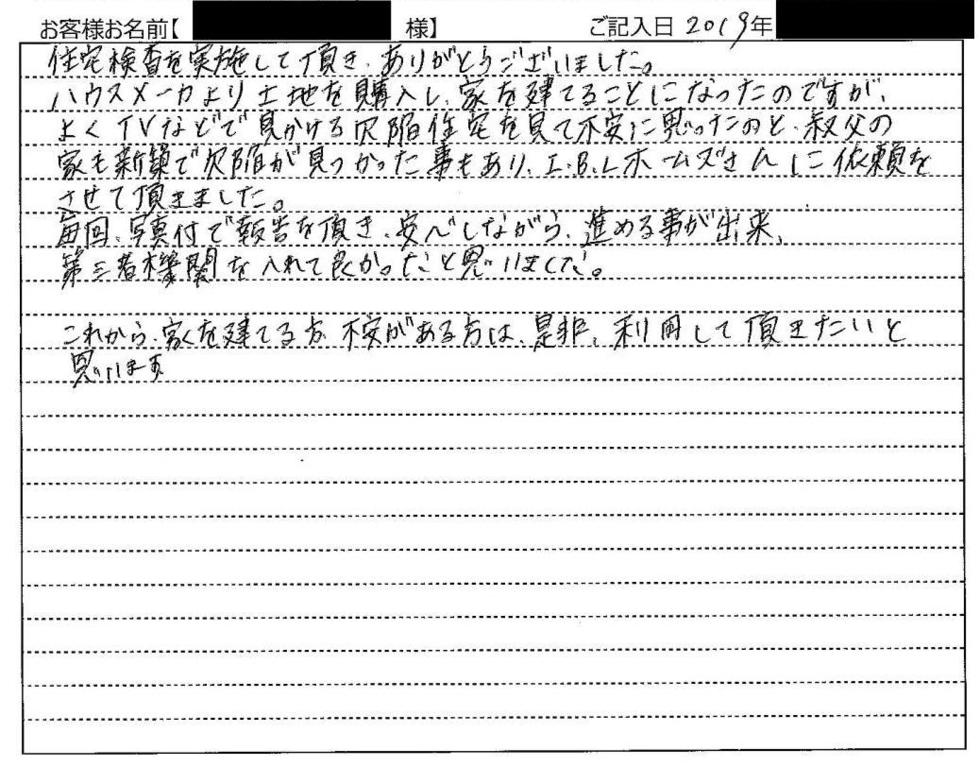 お客様お名前【 様】 ご記入日 2019年
住宅検査を実施して頂き、ありがとうございました。
ハウスメーカより土地を購入し、家を建てることになったのですが、
よくTVなどで見かける欠陥住宅を見て不安に思ったのと、叔父の
家も新築で欠陥が見つかった事もあり、I.B.Lホームズさんに依頼を
させて頂きました。
毎回、写真付で報告を頂き、安心しながら、進める事が出来、
第三者機関を入れて良かったと思いました。
これから、家を建てる方、不安がある方は、是非、利用して頂きたいと
思います